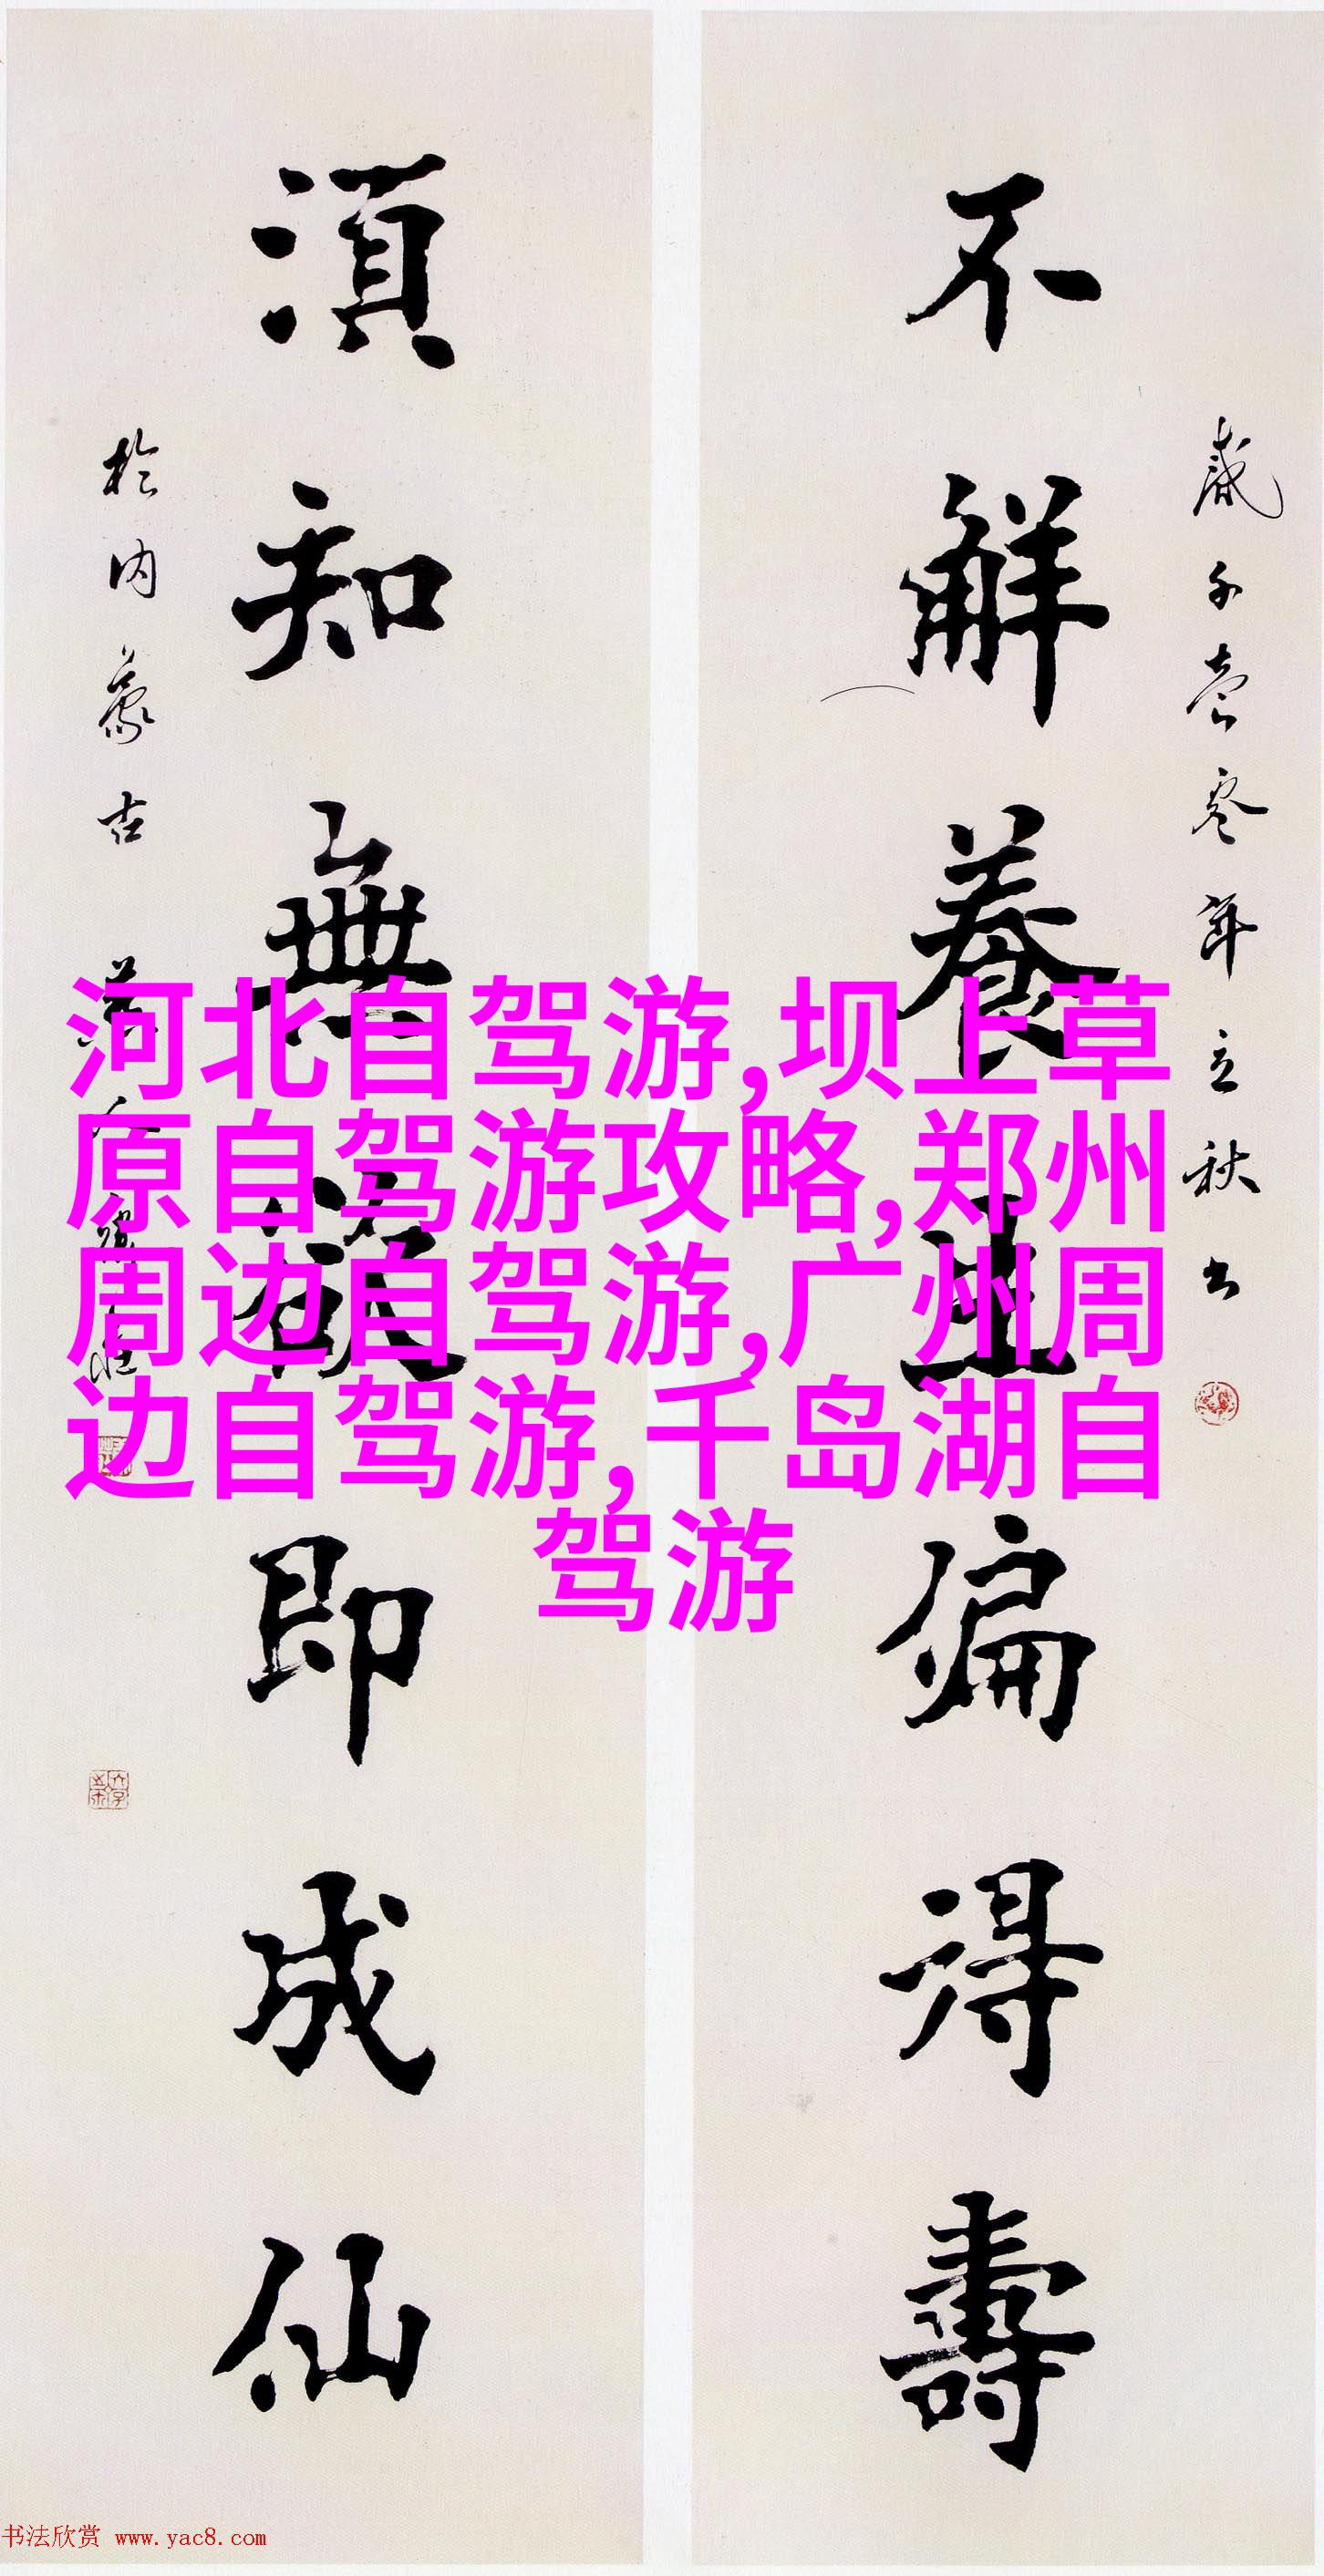 歲于壹零年立秋书
不解養生偏得壽
須知無欲即成仙
於内蒙古
河北自驾游,坝上草
原自驾游攻略,郑州
周边自驾游,广州周
边自驾游,千岛湖自
驾游
书法欣赏 www.yac8.com